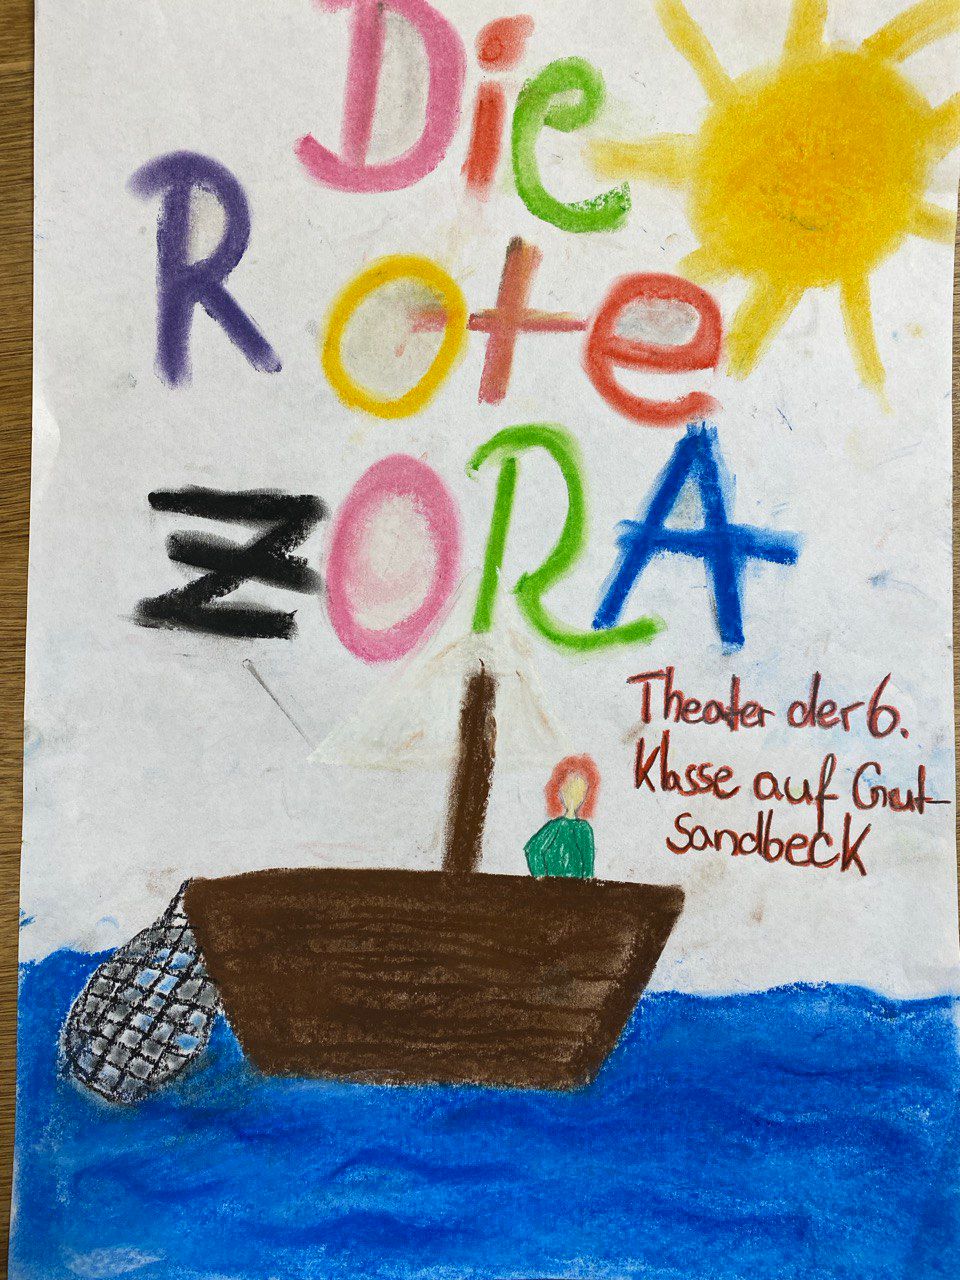 Die
Rote
ZORA
Theater der 6.
Klasse auf Gut
Sandbeck